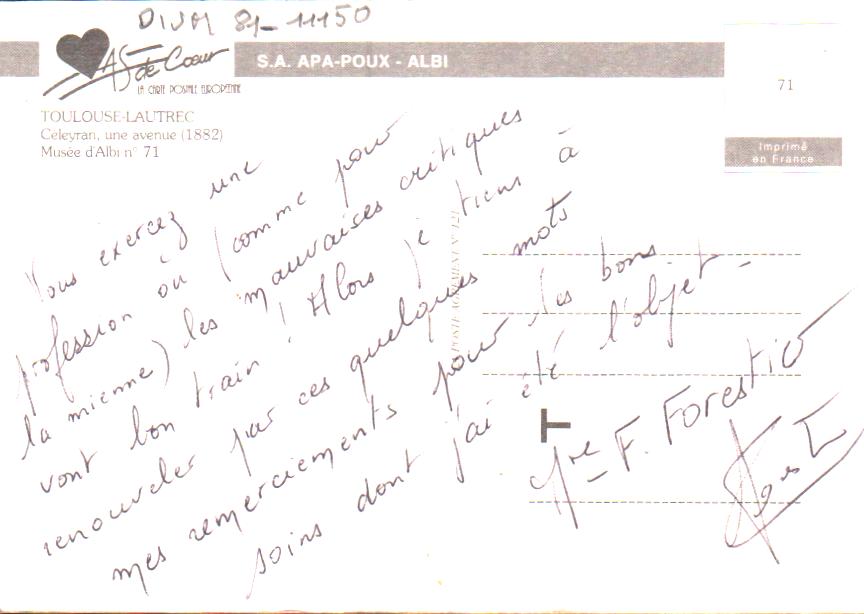 DIVA 81-11150
AS de Cœur
LA CARTE POSTALE EUROPÉENNE
S.A. APA-POUX - ALBI
TOULOUSE-LAUTREC
Céleyran, une avenue (1882)
Musée d'Albi n° 71
71
Imprimé
en France
Vous exercez une
profession où (comme pour
la mienne) les mauvaises critiques
vont bon train ! Alors je tiens à
renouveler par ces quelques mots
mes remerciements pour les bons
soins dont j'ai été l'objet -
F. Forestié
POSTE AGREMENT N° 421
T